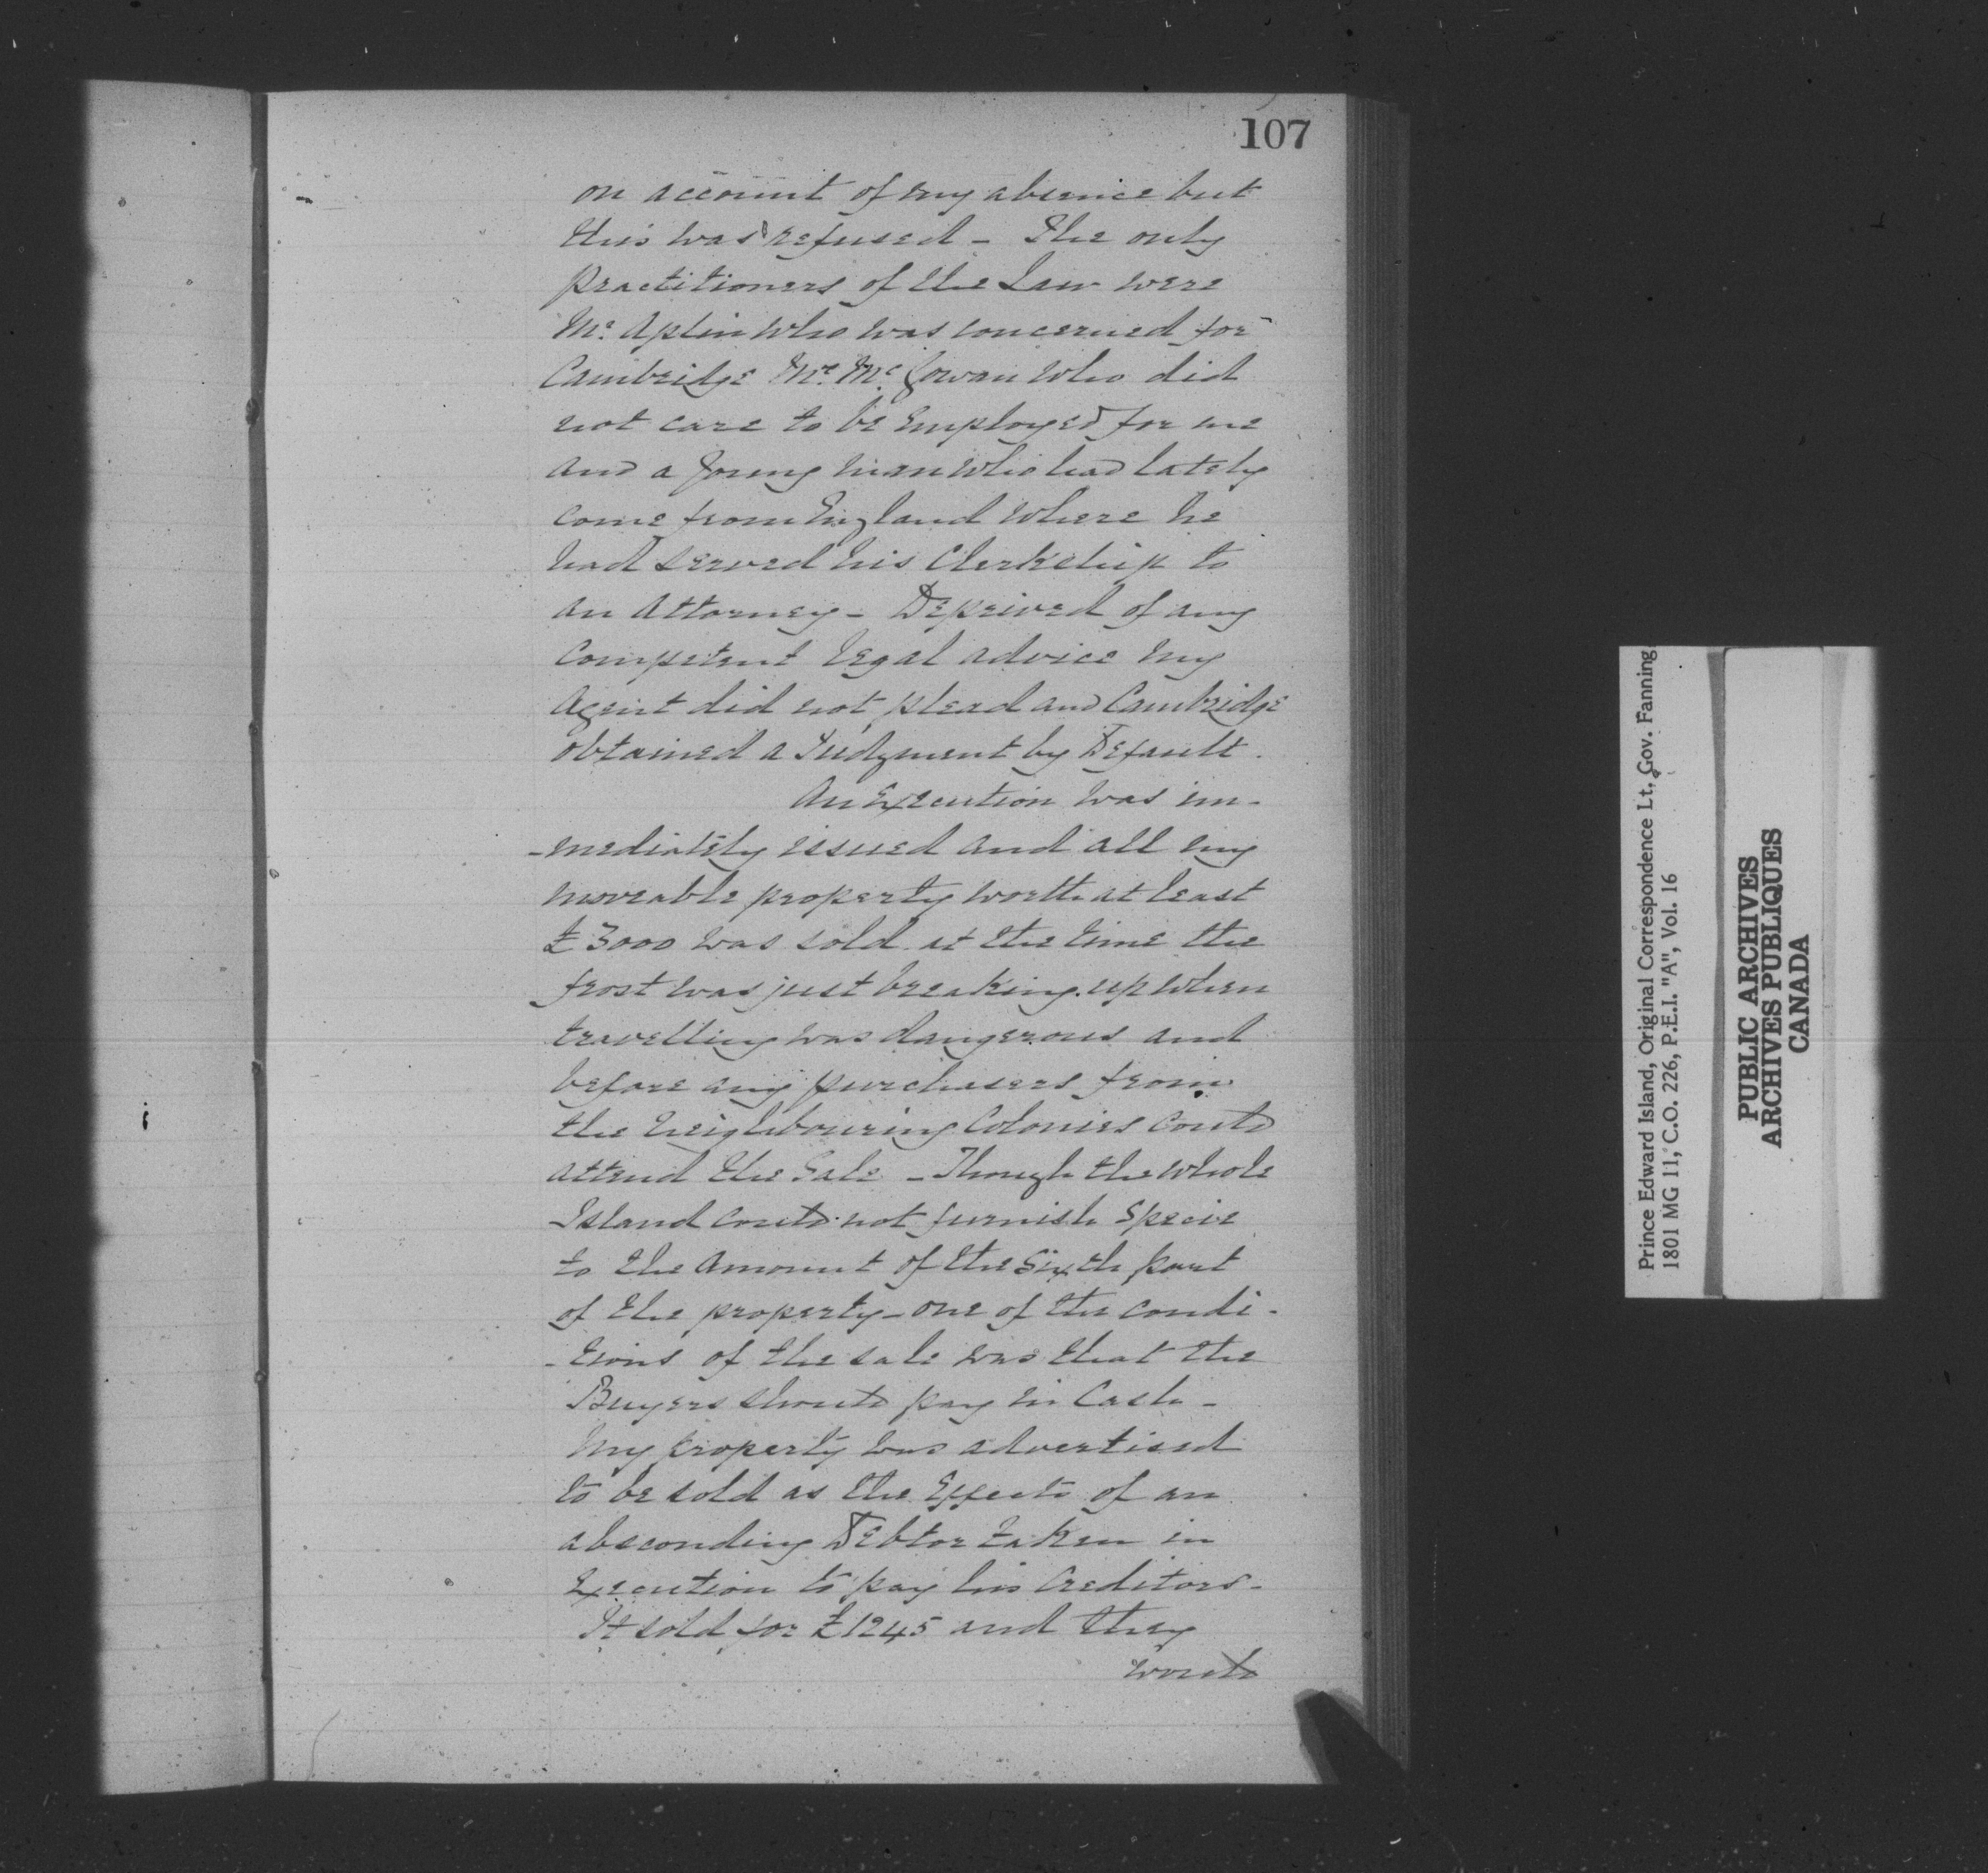 107
on account of my absence but
this was refused - The only
practitioners of the Law were
Mr. Aplin who was concerned for
Cambridge Mr. Mc.Gowan who did
not care to be Employed for me
and a Young man who had lately
come from England where he
had served his Clerkship to
an Attorney - Deprived of any
Competent legal advice my
Agent did not plead and Cambridge
obtained a Judgment by Default.
An Execution was im-
-mediately issued and all my
moveable property worth at least
£3000 was sold at the time the
frost was just breaking up when
travelling was dangerous and
before any purchasers from
the Neighbouring Colonies could
attend the Sale - Though the whole
Island could not furnish Specie
to the Amount of the Sixth part
of the property - one of the condi-
-tions of the sale was that the
Buyers should pay in Cash -
My property was advertised
to be sold as the Effects of an
absconding Debtor taken in
Execution to pay his Creditors -
It sold for £1245 and they
would
Prince Edward Island, Original Correspondence Lt. Gov. Fanning
1801 MG 11, C.O. 226, P.E.I. "A", Vol. 16
PUBLIC ARCHIVES
ARCHIVES PUBLIQUES
CANADA